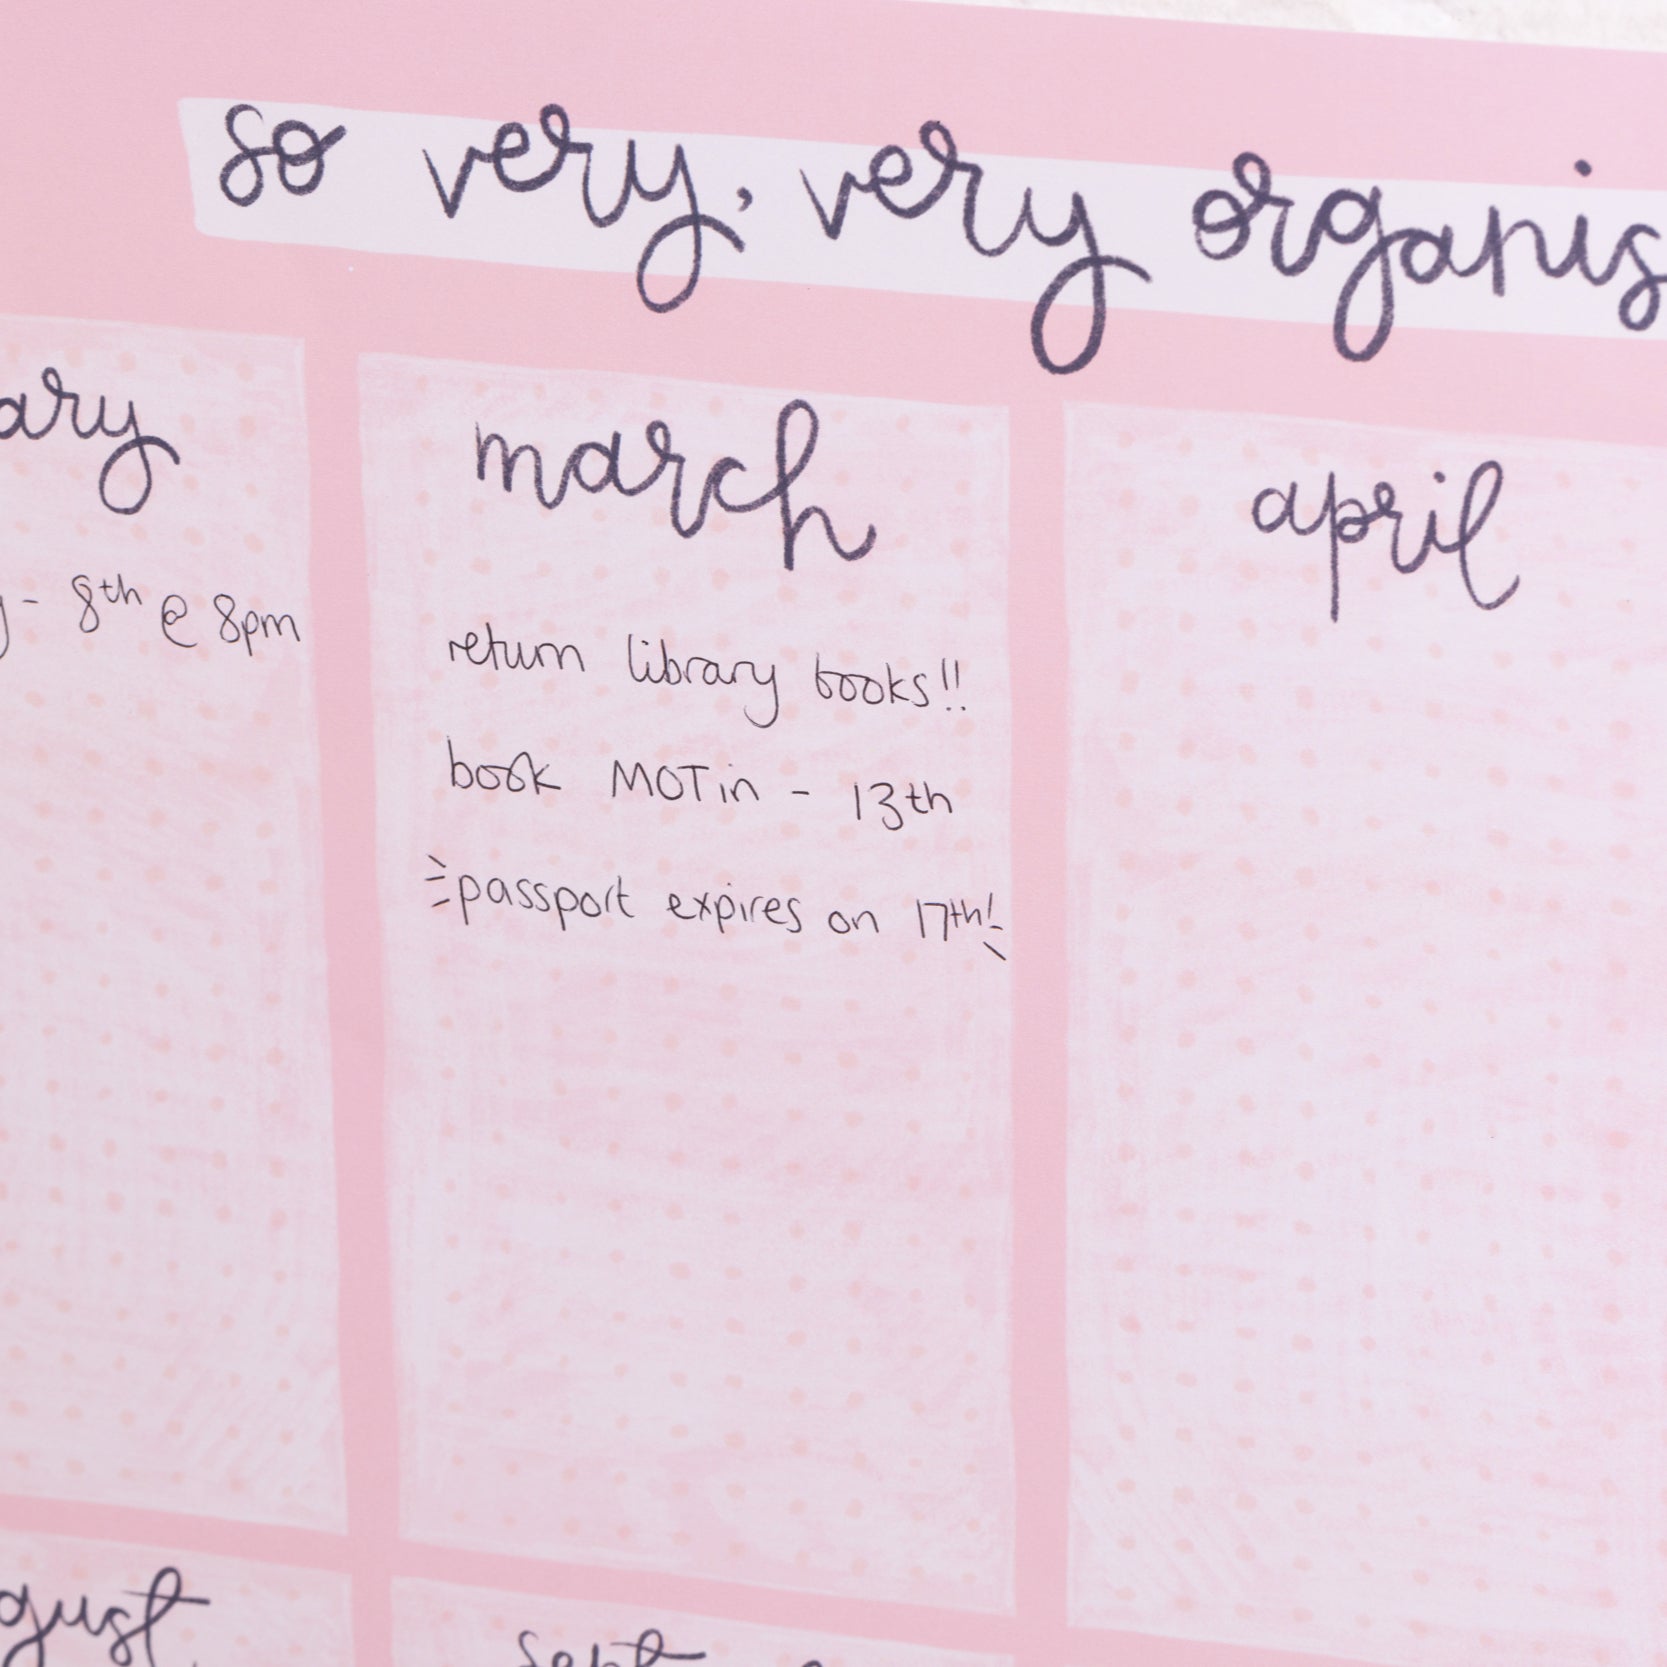 so very, very organis
ary
march
april
- 8th @ 8pm
return library books!!
book MOT in - 13th
passport expires on 17th!
gust
Sept